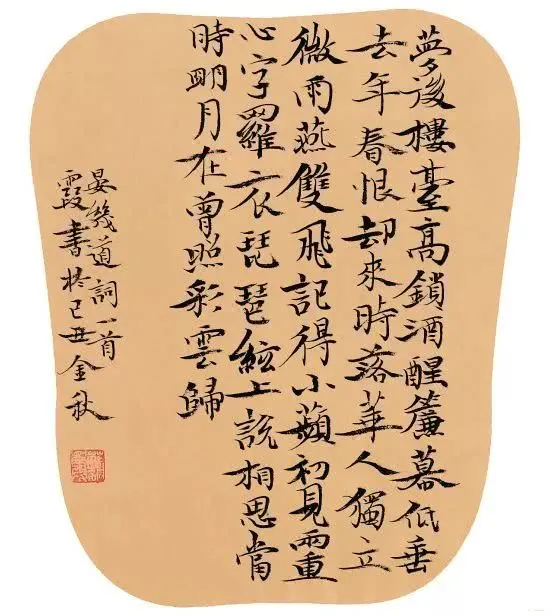 夢後樓臺高鎖酒醒簾幕低垂
去年春恨却來時落華人獨立
微雨燕雙飛記得小蘋初見兩重
心字羅衣琵琶絃上説相思當
時明月在曾照彩雲歸
晏幾道詞一首
霞書於己丑金秋